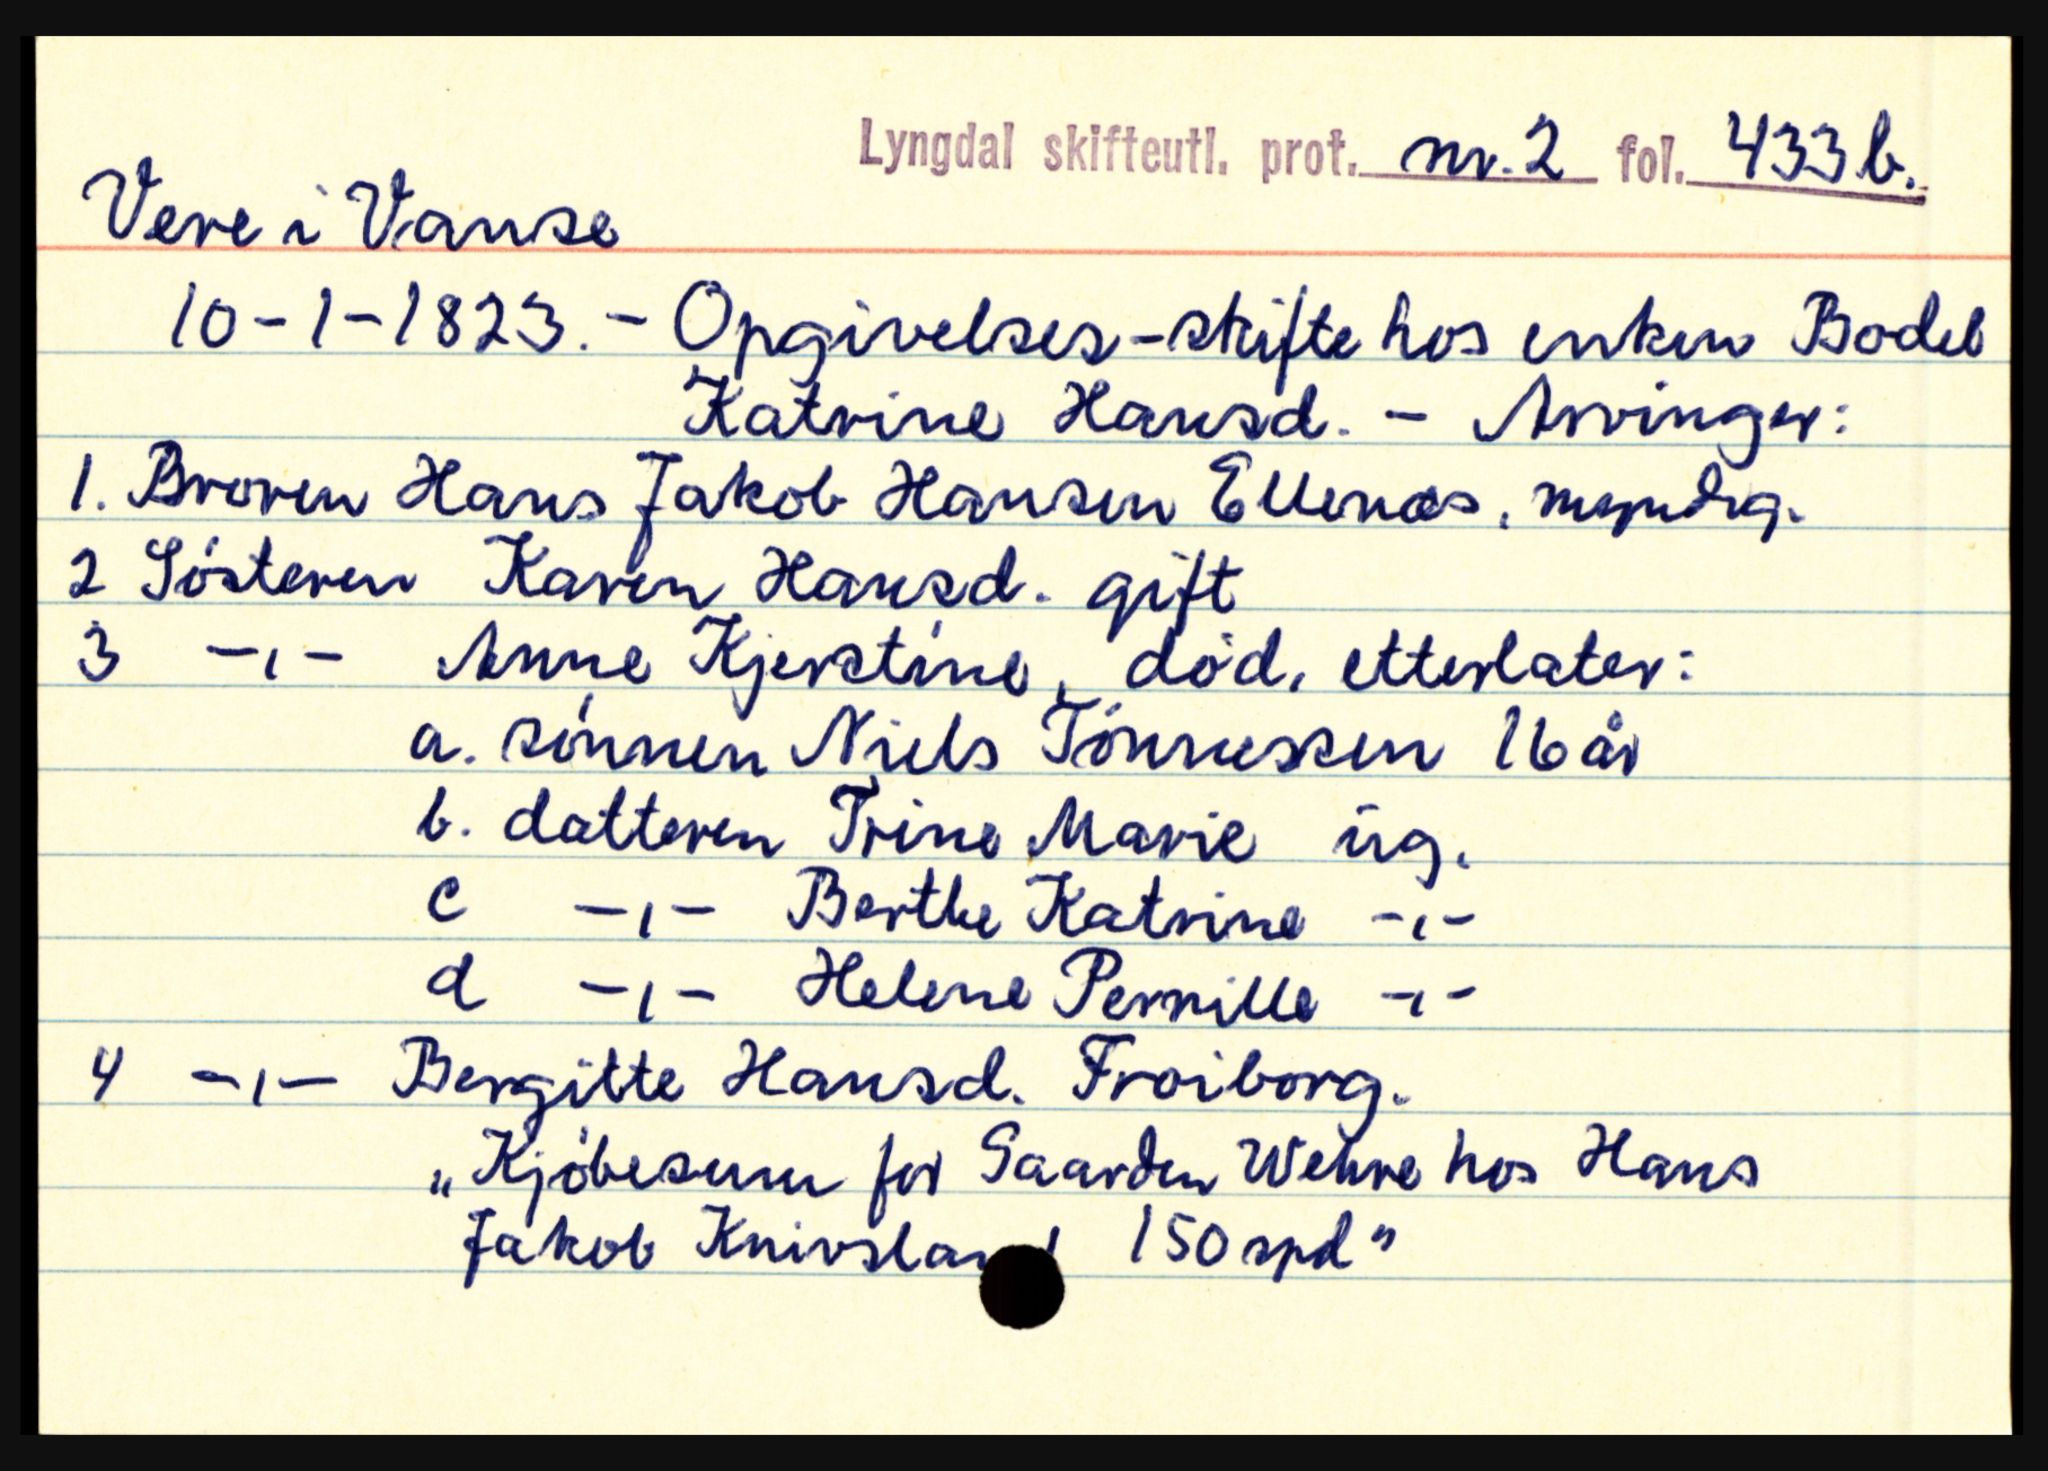 Lyngdal skifteutl. prot. nr. 2 fol. 433 b.
Vere i Vanse
10-1-1823. - Opgivelses-skifte hos enken Bodel
Katrine Hansd. - Arvinger:
1. Broren Hans Jakob Hansen Ellenæs, myndig.
2 Søsteren Karen Hansd. gift
3 -,- Anne Kjerstine, død, etterlater:
a. sønnen Niels Tønnessen 16 år
b. datteren Trine Marie ug.
c -,- Berthe Katrine -,-
d -,- Helene Pernille -,-
4 -,- Bergitte Hansd. Froiborg.
„Kjøbesum for Gaarden Wehre hos Hans
Jakob Knivsland 150 spd"